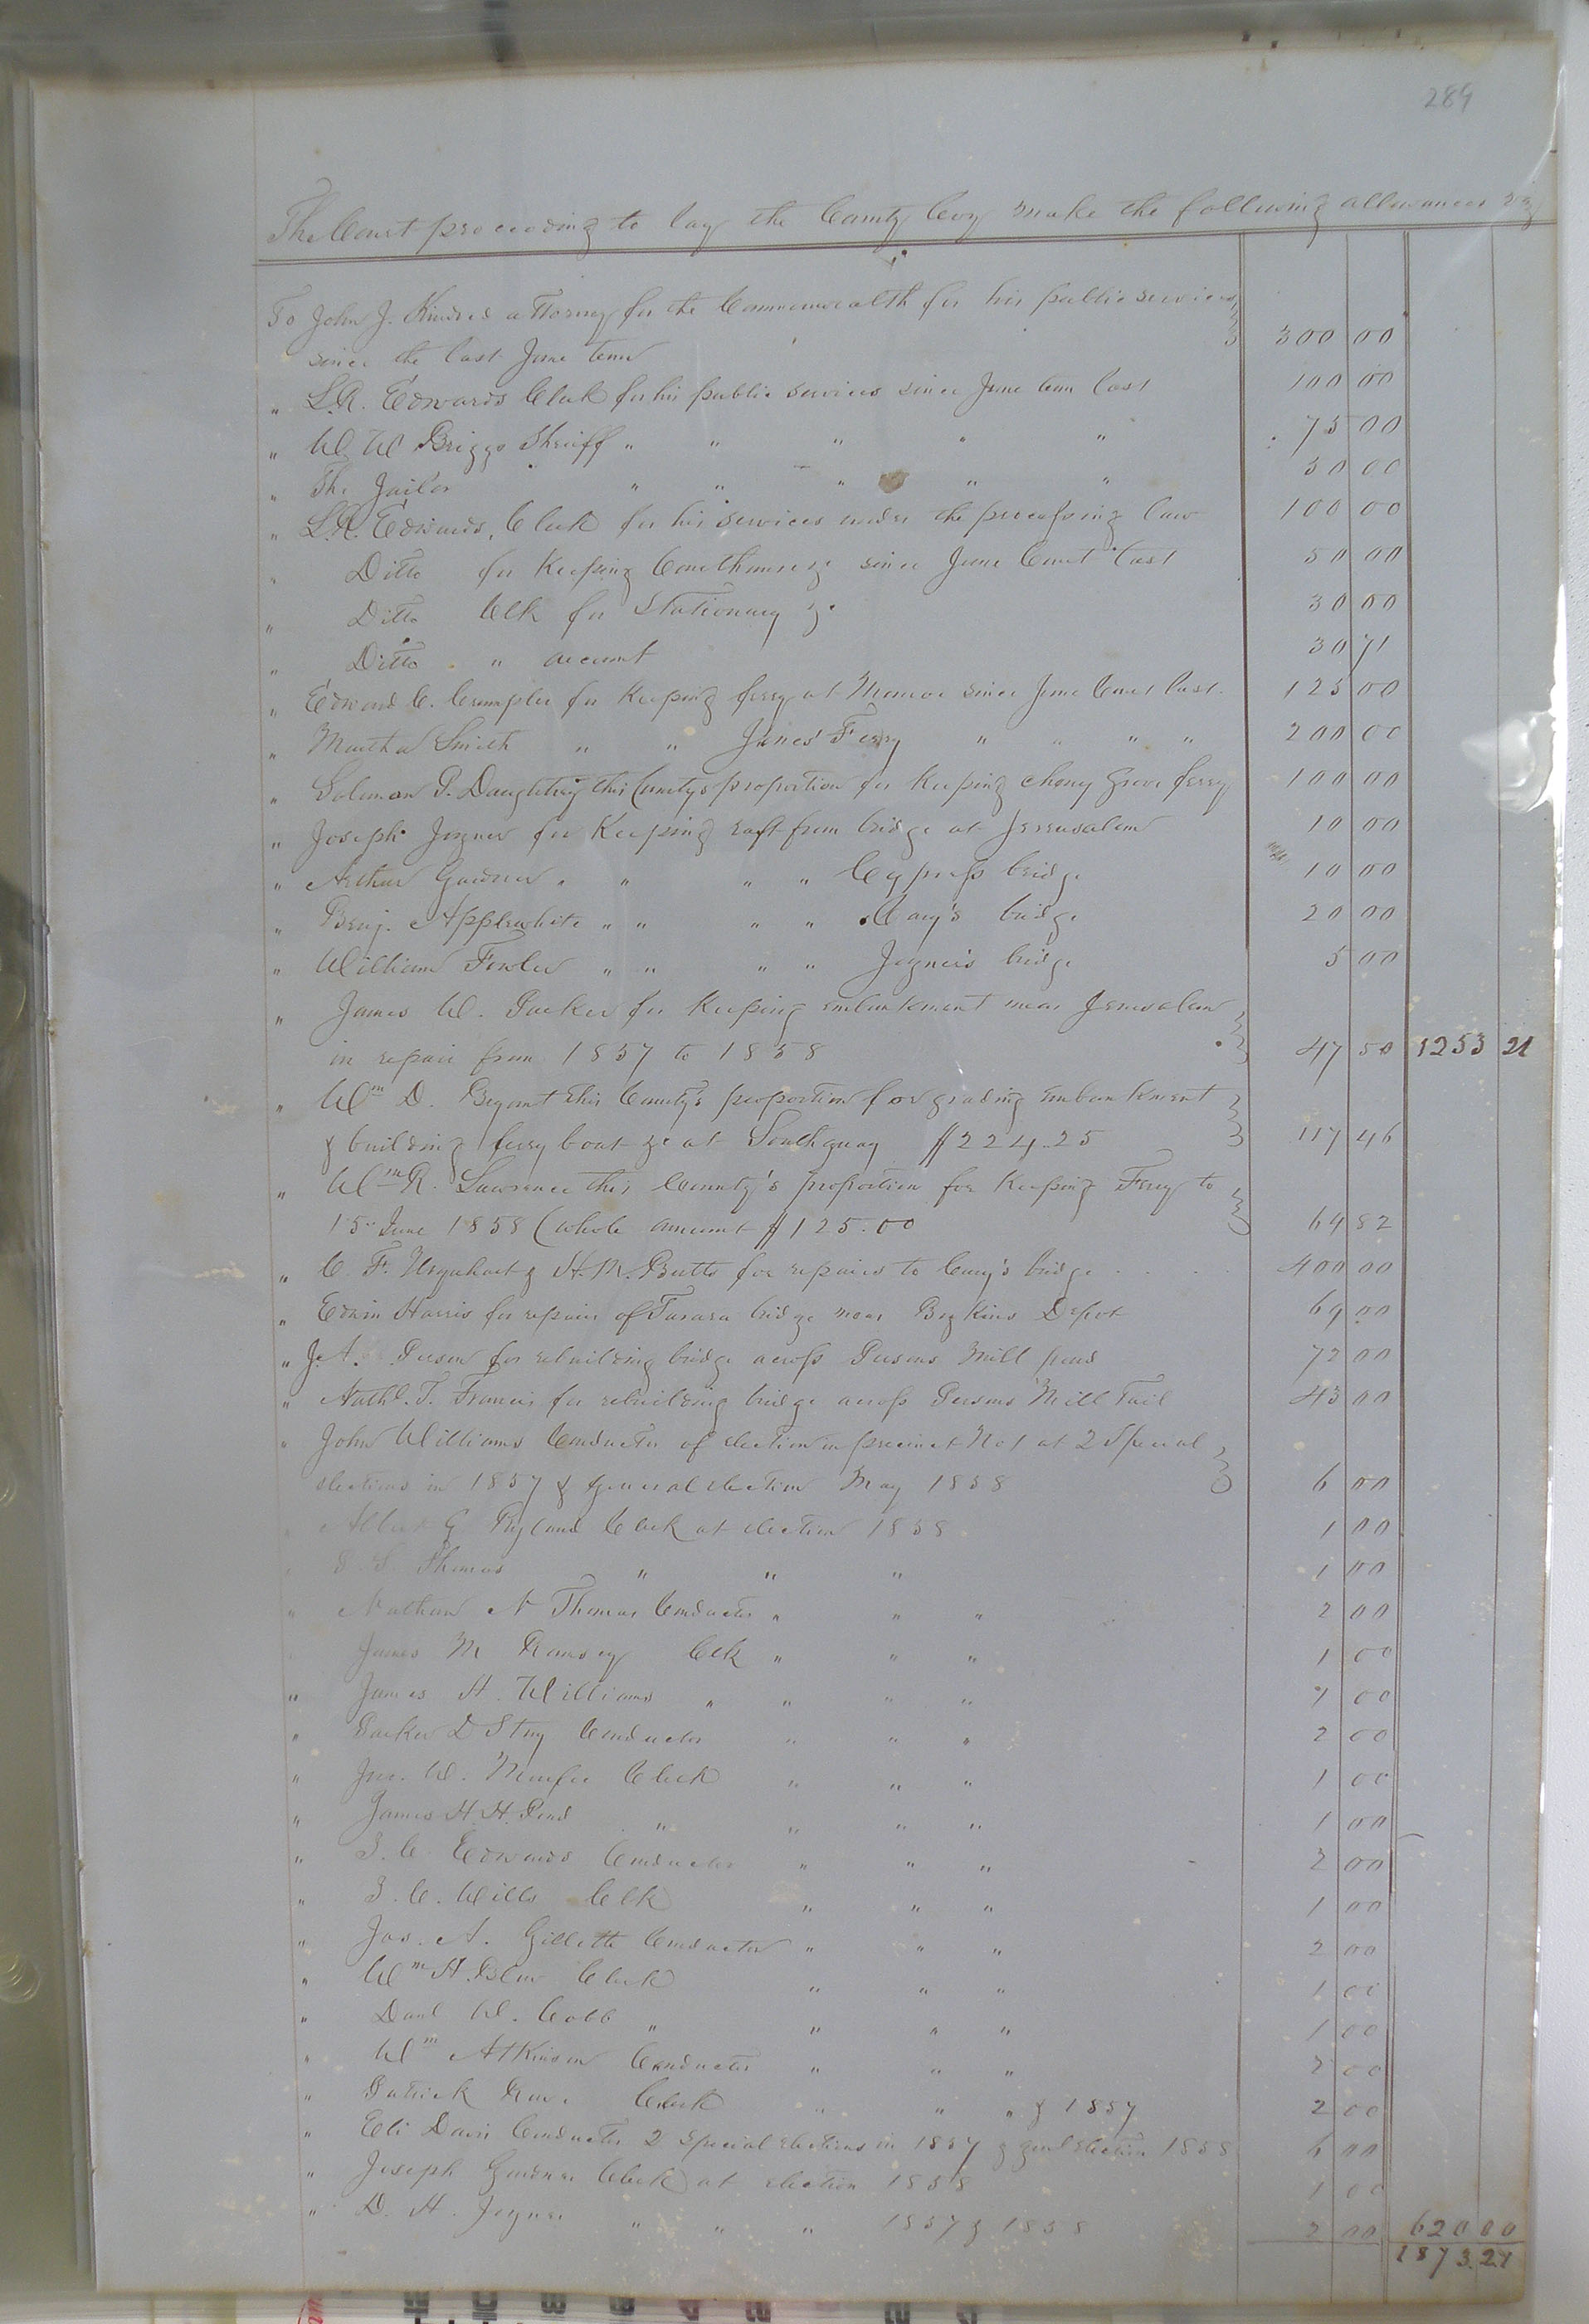 289
The Court proceeding to lay the County Levy make the following allowances viz
To John J. Kindred attorney for the Commonwealth for his public services
since the last June term 300 00
" L.R. Edwards Clerk for his public services since June term last 100 00
" W. W. Briggs Sheriff " " " " " 75 00
" The Jailor " " " " " 50 00
" L.R. Edwards, Clerk for his services under the processioning law 100 00
" Ditto for Keeping Courthouse &c since June Court last 50 00
" Ditto Clk for Stationary &c 30 00
" Ditto " account 30 71
" Edward C. Crumpler for Keeping ferry at Monroe since June Court last 125 00
" Martha Smith " " Jones' Ferry " " " " 200 00
" Soloman P. Daughtrey this Countys proportion for Keeping Cherry Grove ferry 100 00
" Joseph Joyner for Keeping raft from bridge at Jerrusalem 10 00
" Arthur Gardner " " " " Cypress bridge 10 00
" Benj. Applewhite " " " " Cary's bridge 20 00
" William Fowler " " " " Joyner's bridge 5 00
" James W. Parker for Keeping embankment near Jerusalem
in repair from 1857 to 1858 47 50 1253 21
" Wm D. Bryant this County's proportion for grading embankment
& building ferry boat &c at Southquay $224.25 117 46
" Wm R. Lawrence this County's proportion for Keeping Ferry to
15" June 1858 (whole amount $125.00 64 82
" C. F. Urquhart & H. M. Butts for repairs to Cary's bridge 400 00
" Edwin Harris for repairs of Tarara bridge near Boykins Depot 69 00
" J. A. Person for rebuilding bridge across Persons Mill pond 72 00
" Nathl. T. Francis for rebuilding bridge across Persons Mill Tail 43 00
" John Williams Conductor of election in precinct No 1 at 2 Special
elections in 1857 & general election May 1858 6 00
Albert G Ryland Clerk at election 1858 1 00
Thomas " " " 1 00
" Nathan N Thomas Conductor " " " 2 00
James M Ramsey Clk " " " 1 00
" James H. Williams " " " " 1 00
" Parker D Story Conductor " " " 2 00
" Jno. W. Clerk " " " 1 00
" James H. H. Pond " " " " 1 00
" Edwards Conductor " " " 2 00
" Wills Clk " " " 1 00
" Jas. A. Gillette Conductor " " " 2 00
" Wm H. Blow Clerk " " " 1 00
" Danl W. Cobb " " " " 1 00
" Wm Atkinson Conductor " " " 2 00
" Patrick Clerk " " " & 1857 2 00
" Eli Davis Conductor 2 special elections in 1857 & genl election 1858 6 00
" Joseph Gardner Clerk at election 1858 1 00
" D. H. Joyner " " " 1857 & 1858 2 00 620 00
1873.21